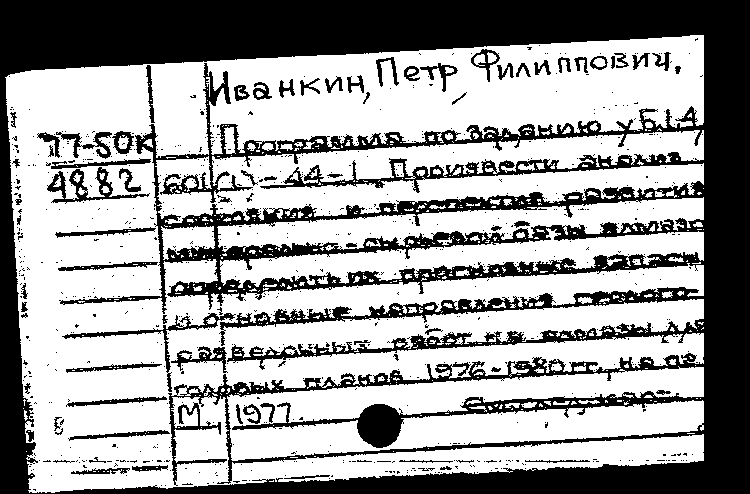 Иванкин, Петр Филиппович.
77-50К
4882
Программа по заданию у Б.1.4
601(1)-44-1 „Произвести анализ
состояния и перспектив развития
минерально-сырьевой базы алмазо
определить их прогнозные запасы
и основные направления геолого-
разведочных работ на алмазы для
годовых планов 1976-1980 гг., на
М., 1977.